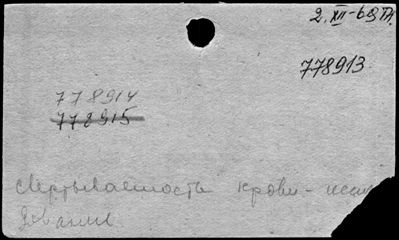 2.XII-69 гл.
778913
778914
778915
свертываемость крови - иссле
дование